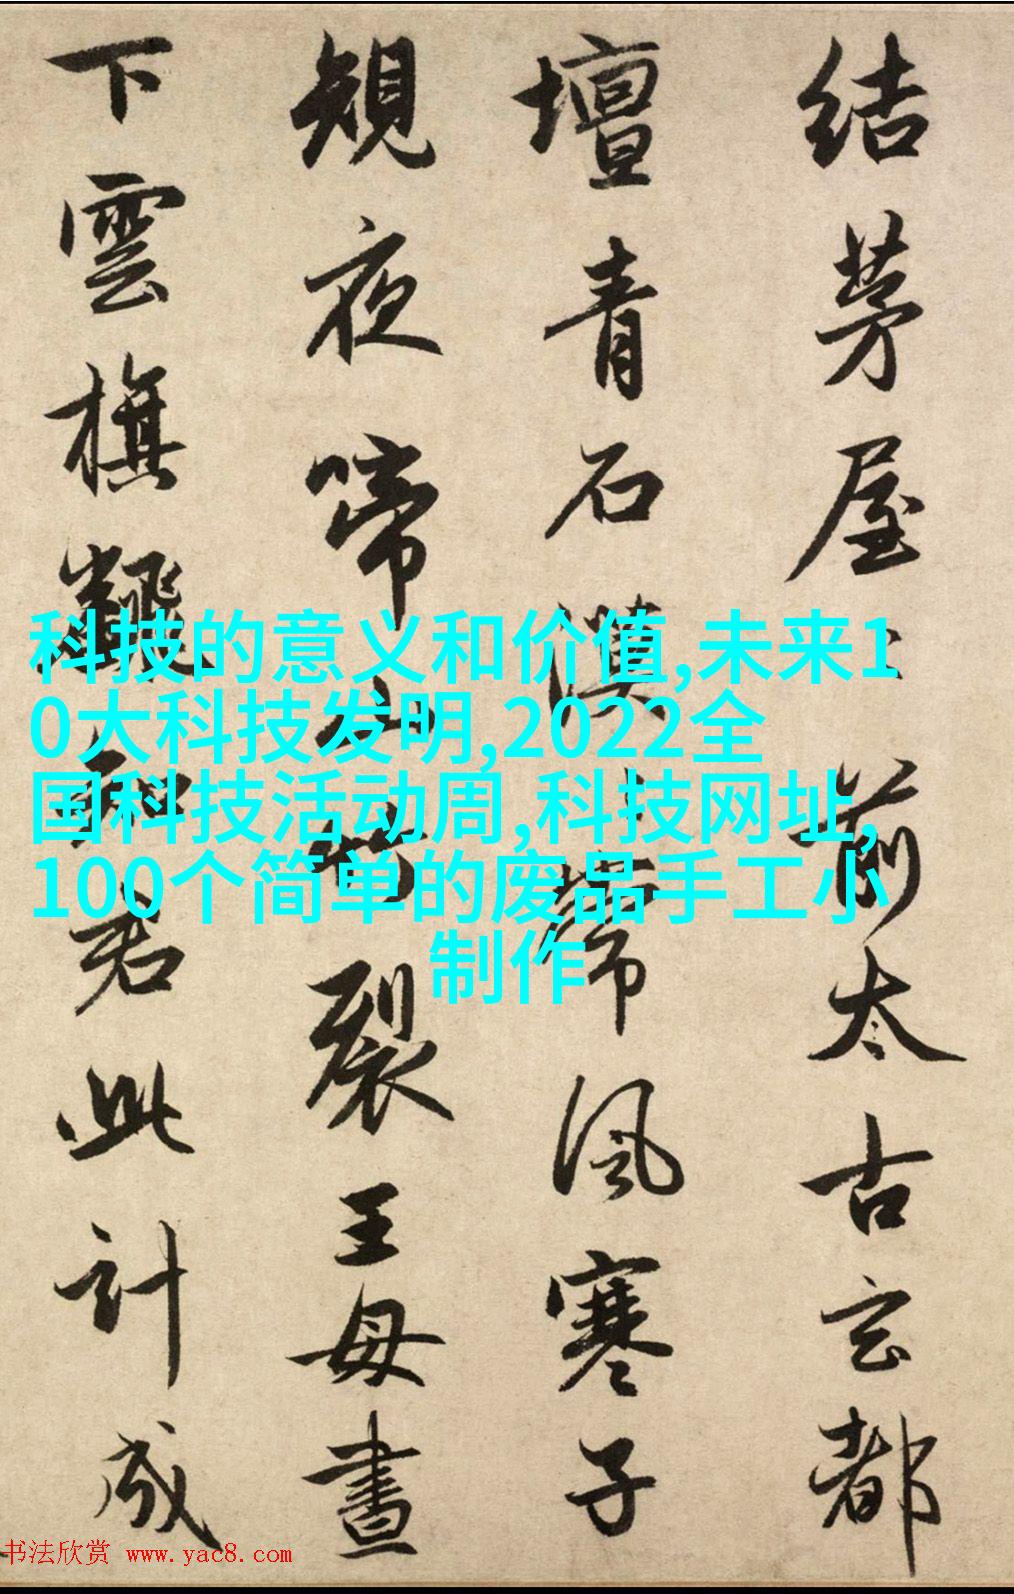 结茅屋〻前太古玄都
壇青石漠〻常風寒子
規夜啼山竹裂王母晝
下雲旗飜知君此計成
科技的意义和价值,未来1
0大科技发明,2022全
国科技活动周,科技网址,
100个简单的废品手工小
制作
书法欣赏 www.yac8.com